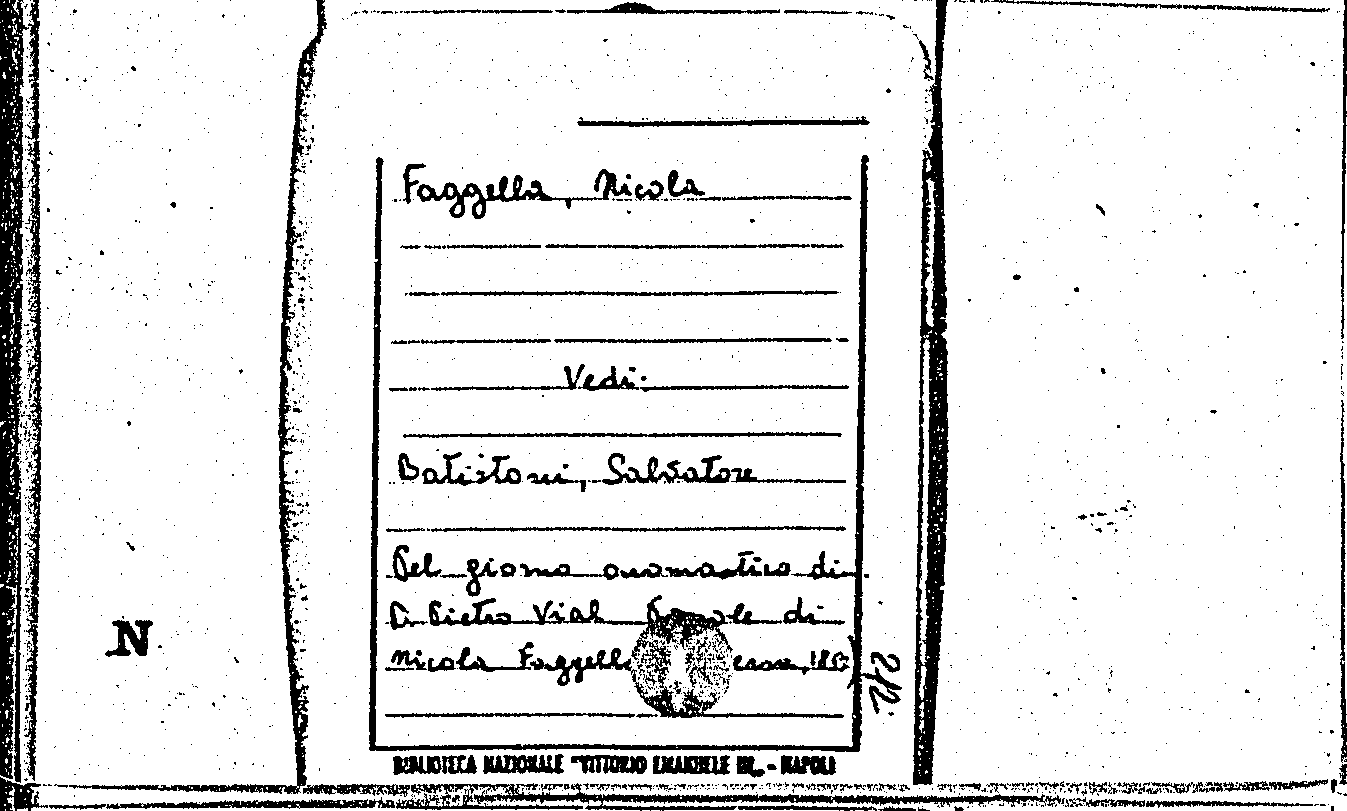 Faggella, Nicola
Vedi:
Batistoni, Salvatore
Pel giorno onomastico di
D. Pietro Vial di
Nicola Faggella
N
BIBLIOTECA NAZIONALE "VITTORIO EMANUELE III„ - NAPOLI